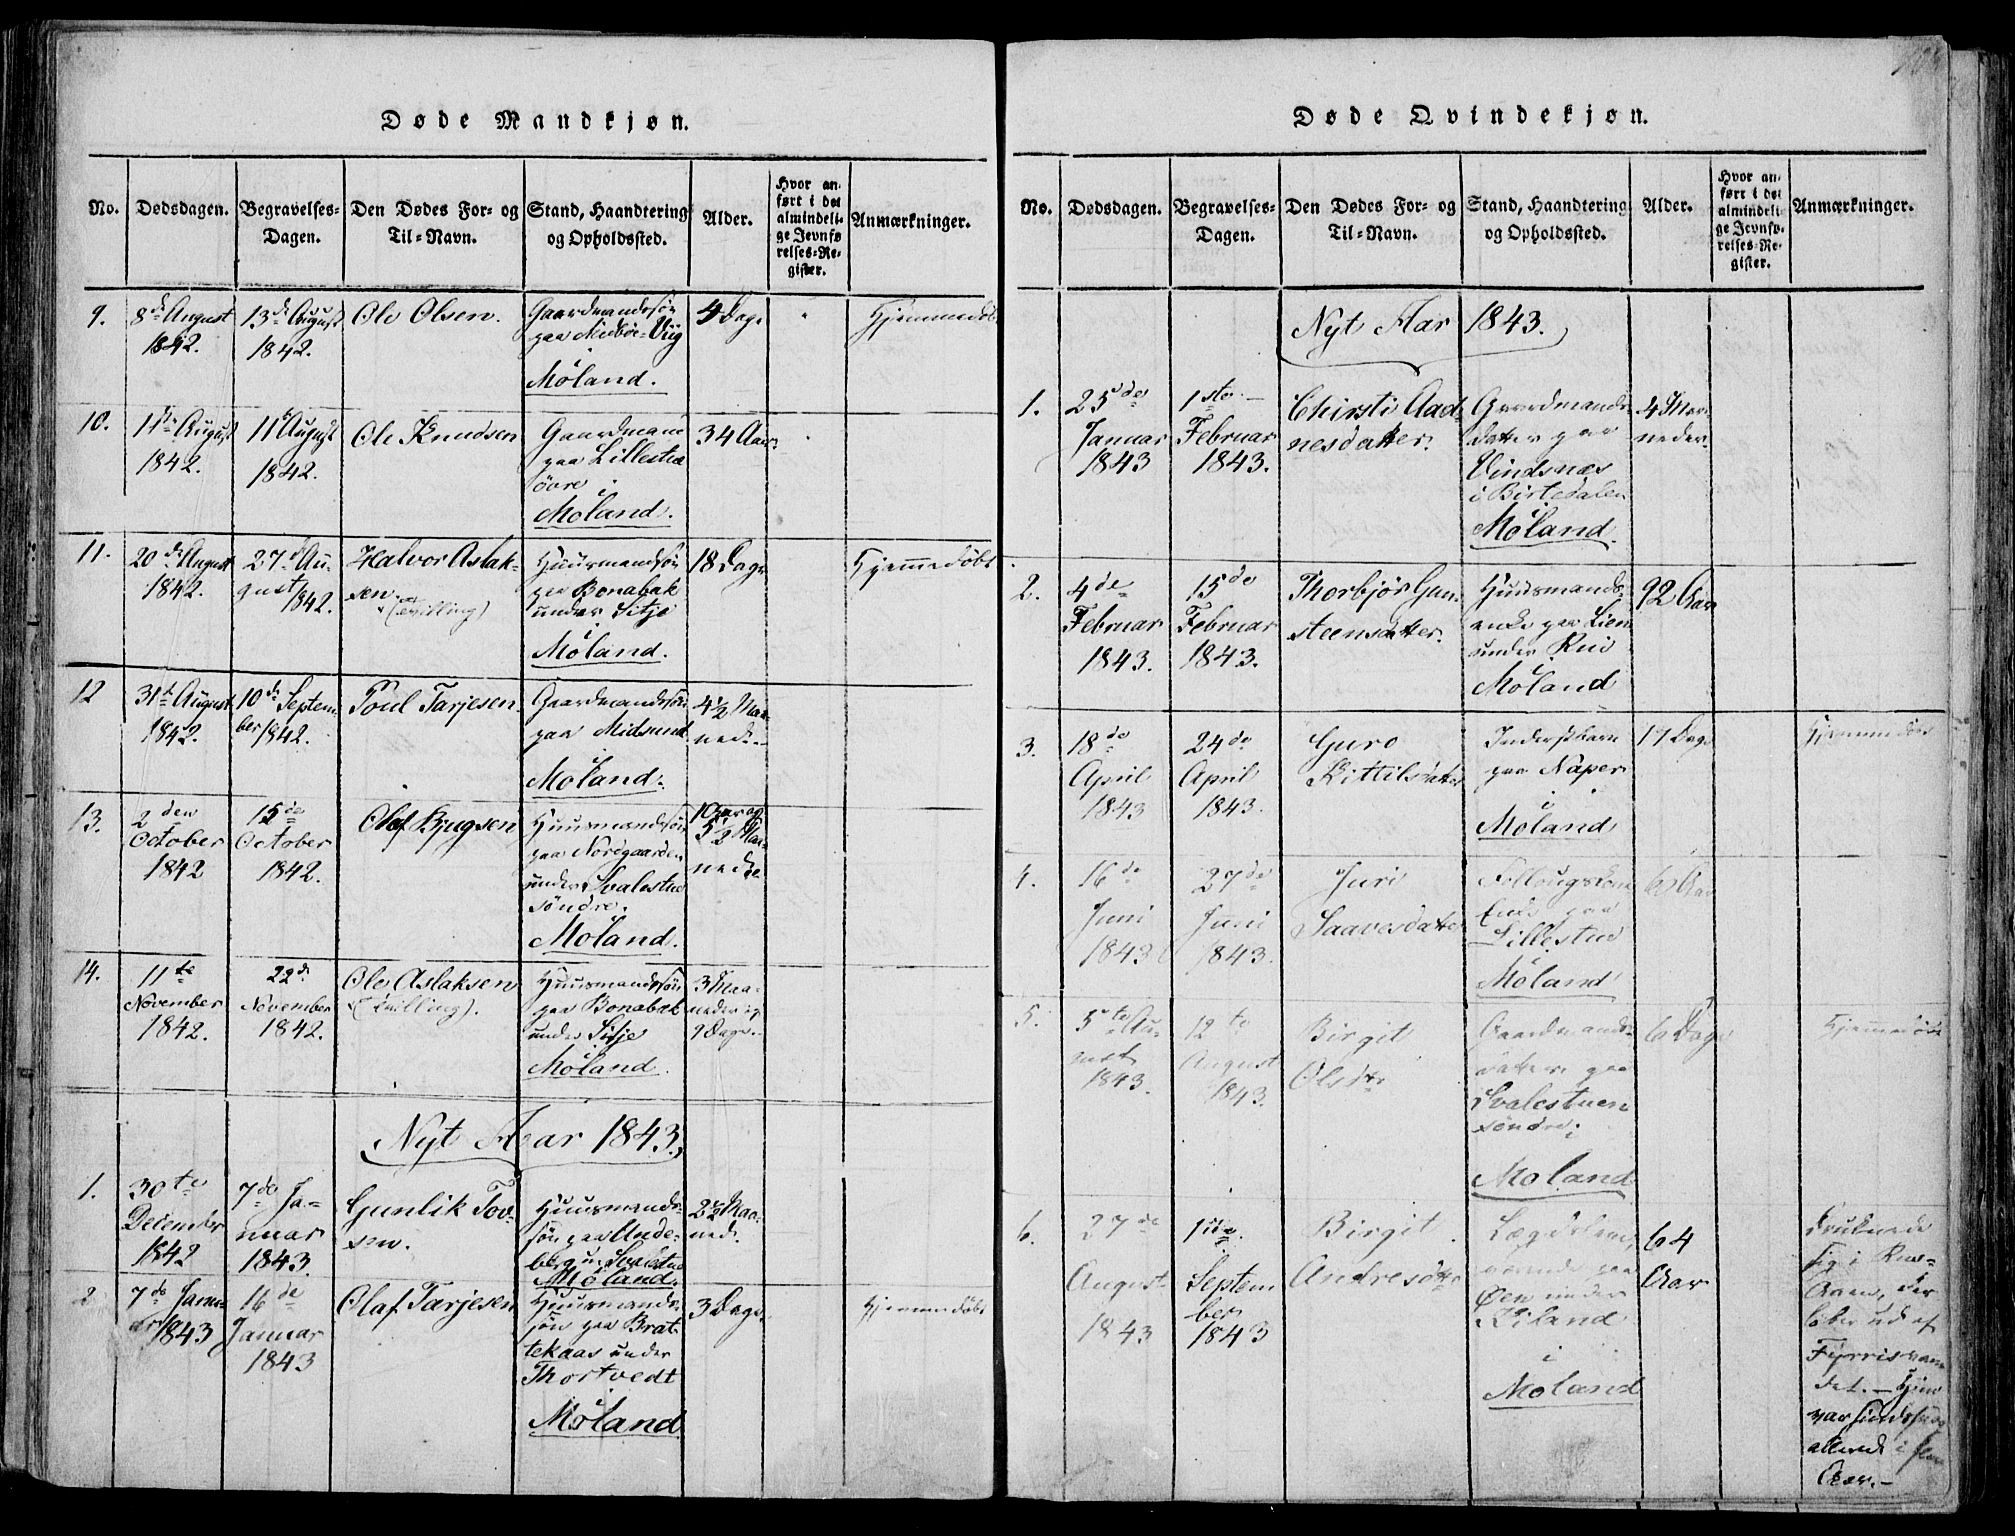 Døde Mandkjøn.
No.
Dødsdagen.
Begravelses-
Dagen.
Den Dødes For- og
Til-Navn.
Stand, Haandtering
og Opholdssted.
Alder.
Hvor an-
ført i det
almindeli-
ge Jevnfø-
relses-Re-
gister.
Anmærkninger.
9.
8de August
1842.
13de August
1842.
Ole Olsen.
Gaardmandssøn
paa
Moland.
4 Dage
Hjemmedøbt
10.
11te August
1842.
11te August
1842.
Ole Knudsen
Gaardmand
paa Lillestue
övre i
Moland.
34 Aar.
11.
20de August
1842.
27de Au-
gust 1842.
Halvor Aslak-
sen.
(Tvilling)
Huusmandssøn
paa Bonabak
under Sitje
Moland.
18 Dage
Hjemmedøbt
12
31te August
1842.
10de Septem-
ber 1842.
Poul Tarjesen
Gaardmandssøn
paa Midsund
i
Moland.
4½ Maa-
neder
13.
2den
October
1842
15de
October
1842.
Olaf Bjugsen
Huusmandssøn
paa Nordgaarden
under Svalestue
söndre.
Moland.
1 Aar og
5½ Maa-
neder
14.
11te
November
1842.
22de
November
1842.
Ole Aslaksen
(Tvilling).
Huusmandssøn
paa Bonabak
under Sitje
Moland.
3 Maa-
neder og
9 Dage.
Nyt Aar 1843.
1.
30te
December
1842
7de Ja-
nuar
1843.
Gunlik Tov-
sen.
Huusmands-
søn paa Unde-
berg u. Svalestue
Moland.
2½ Maa-
ned.
2
7de Janu-
ar 1843
16de
Januar
1843
Olaf Tarjesen
Huusmands-
søn paa Brat-
tekaas under
Thortvedt
Moland
3 Dage.
Hjemmedøbt
Døde Qvindekjøn.
No.
Dødsdagen.
Begravelses-
Dagen.
Den Dødes For- og
Til-Navn.
Stand, Haandtering
og Opholdssted.
Alder.
Hvor an-
ført i det
almindeli-
ge Jevnfø-
relses-Re-
gister.
Anmærkninger.
Nyt Aar 1843.
1.
25de
Januar
1843
1ste
Februar
1843.
Chirsti Aad-
nesdatter.
Gaardmands-
datter paa
Vindsnæs
i Birtedalen
Moland.
4 Maa-
neder.
2.
4de
Februar
1843.
15de
Februar
1843.
Thorbjör Gun-
steensdatter.
Huusmands-
enke paa Lien
under Rui
Moland
92 Aar
3.
18de
April
1843
24de
April
1843.
Guro
Kittilsdatter
Inderstbarn
paa Naper
i
Moland
17 Dage
Hjemmedøbt
4.
16de
Juni
1843
27de
Juni
1843.
Juri
Saavesdatter
Enke paa
Lillestue
Moland
5.
5te Au-
gust
1843.
12te
August
1843.
Birgit
Olsdtr
Gaardmands-
datter paa
Svalestuen
söndre i
Moland
6 Dage
Hjemmedøbt
6.
27de
August
1843
1ste
Septem
ber
1843
Birgit
Andresdtr
Lægdslem,
værende paa
Øen under
Kiland
i
Moland
64
Aar
druknede
sig i
Aaen, der
løber ud af
Fyrrisvan-
det. — Hun
var
allerede i flere
Aar. —